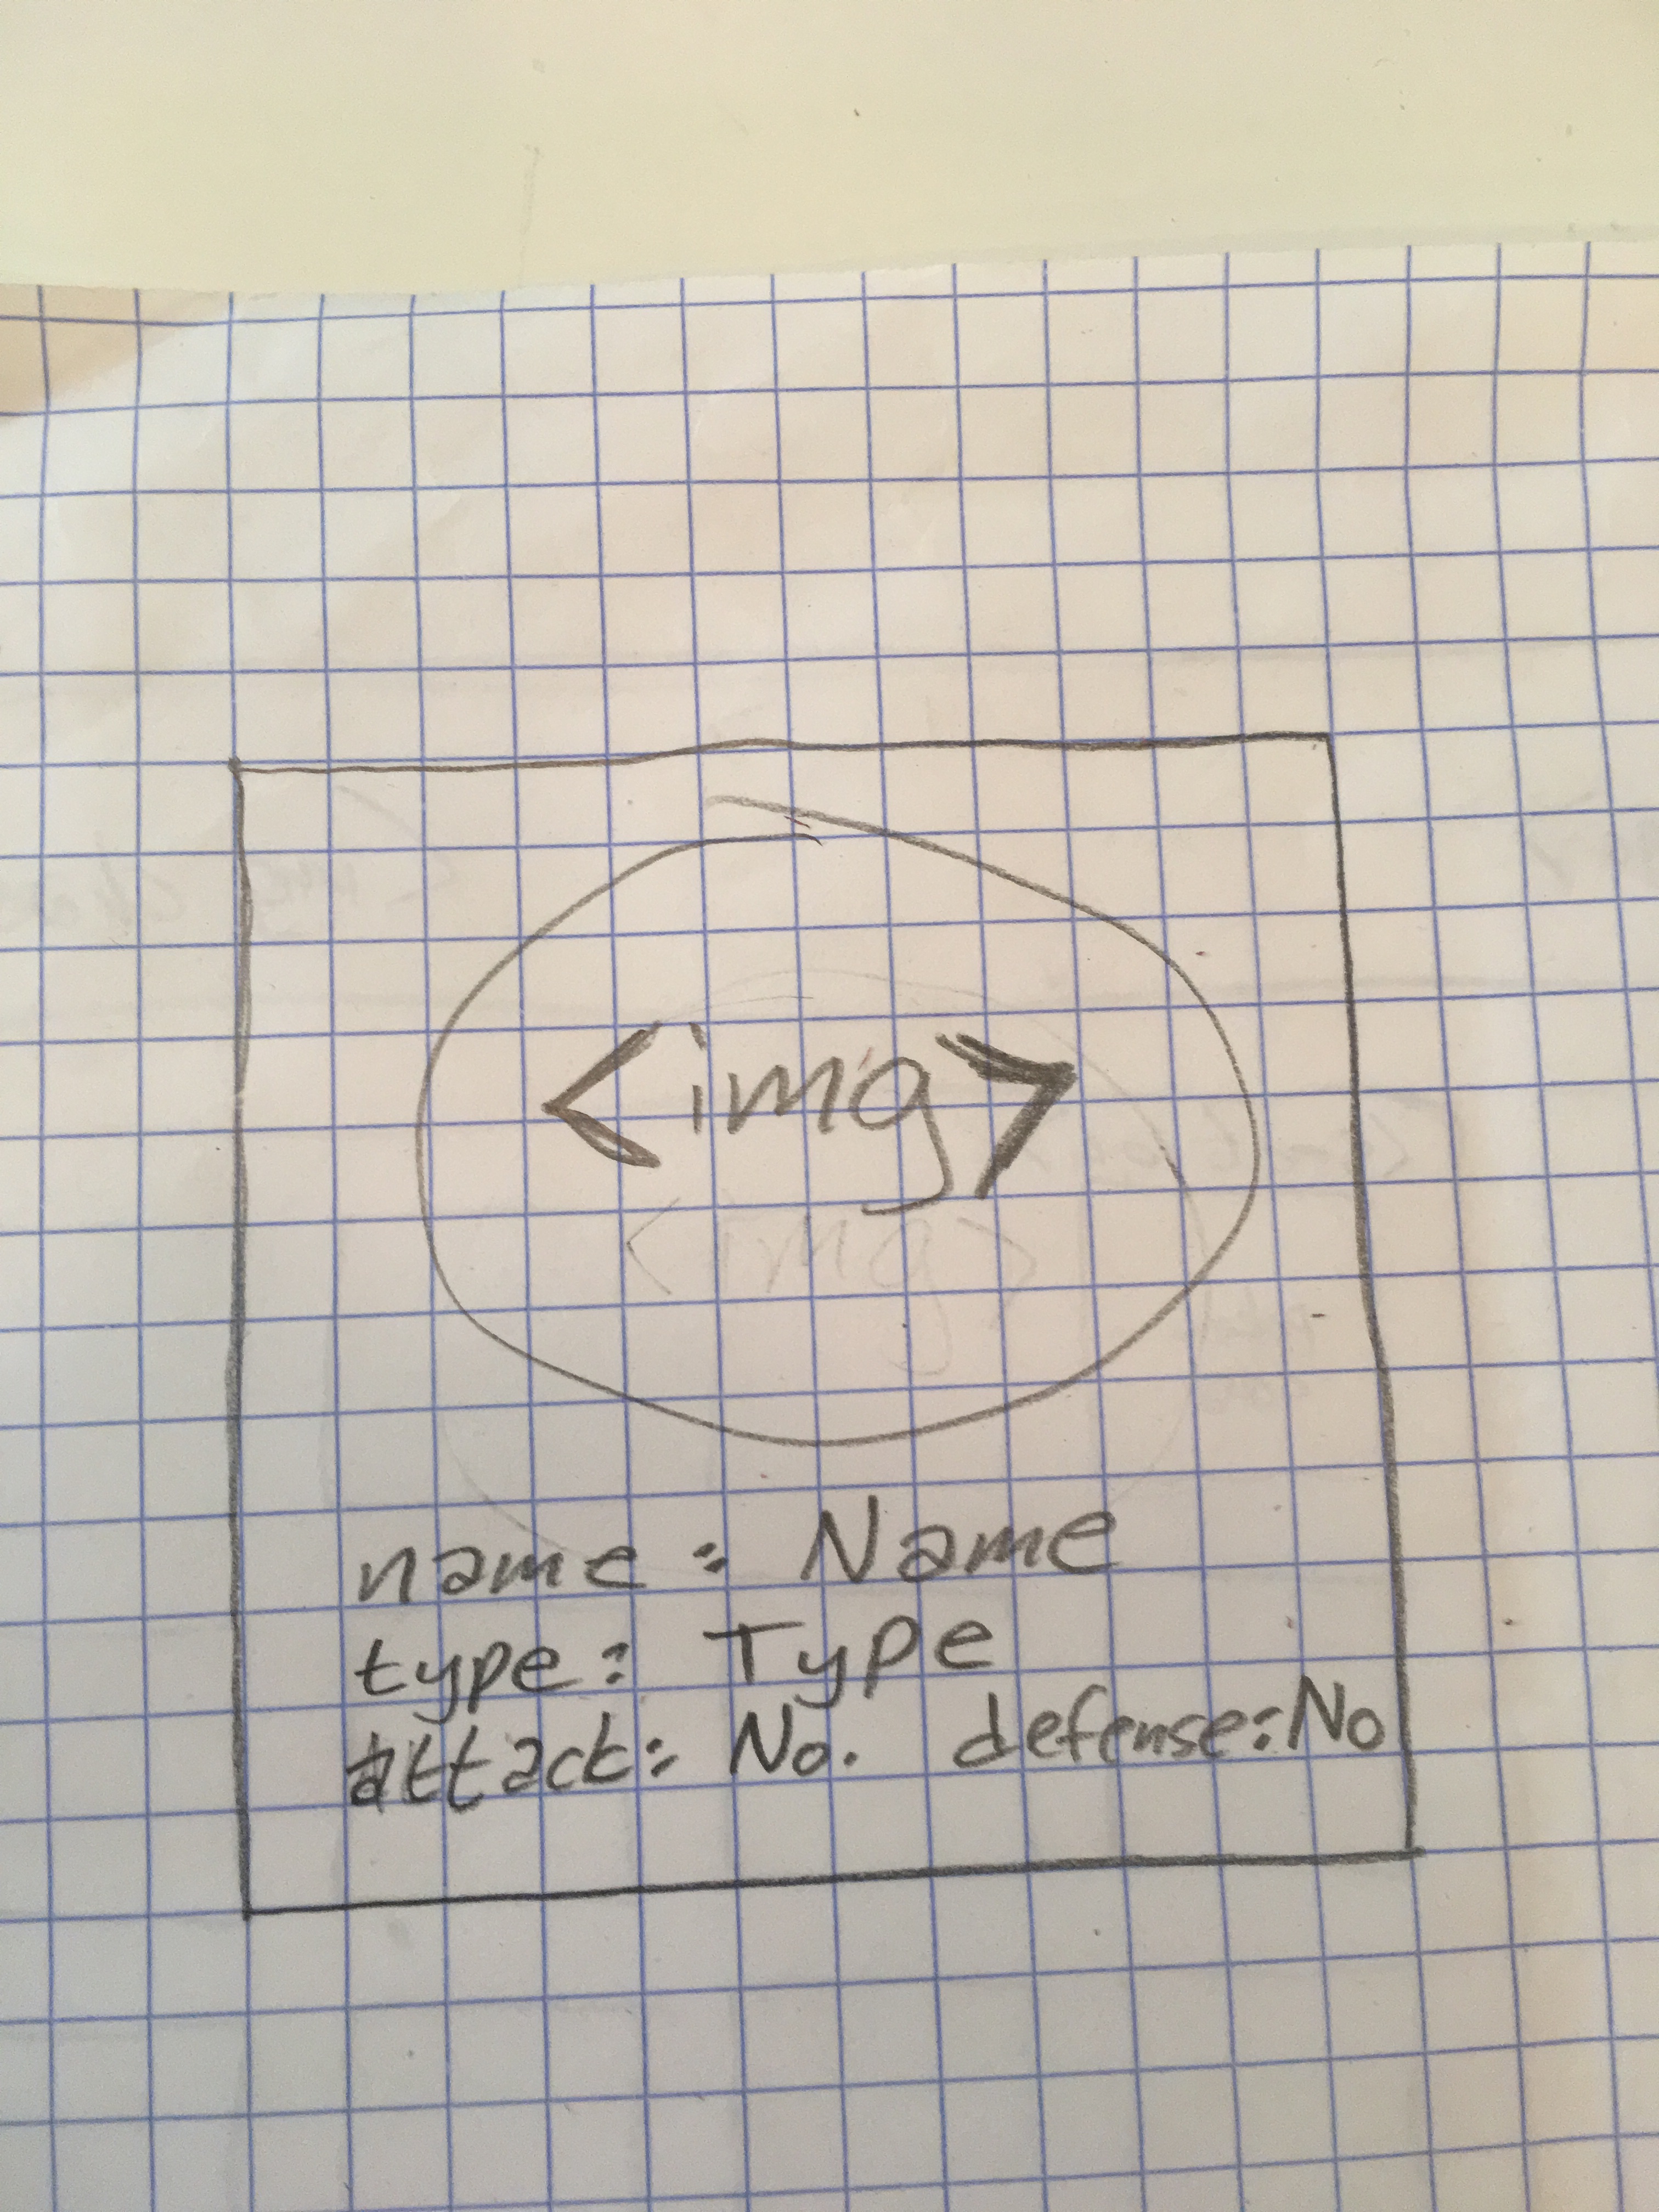 <img>
name: Name
type: Type
attack: No. defense: No